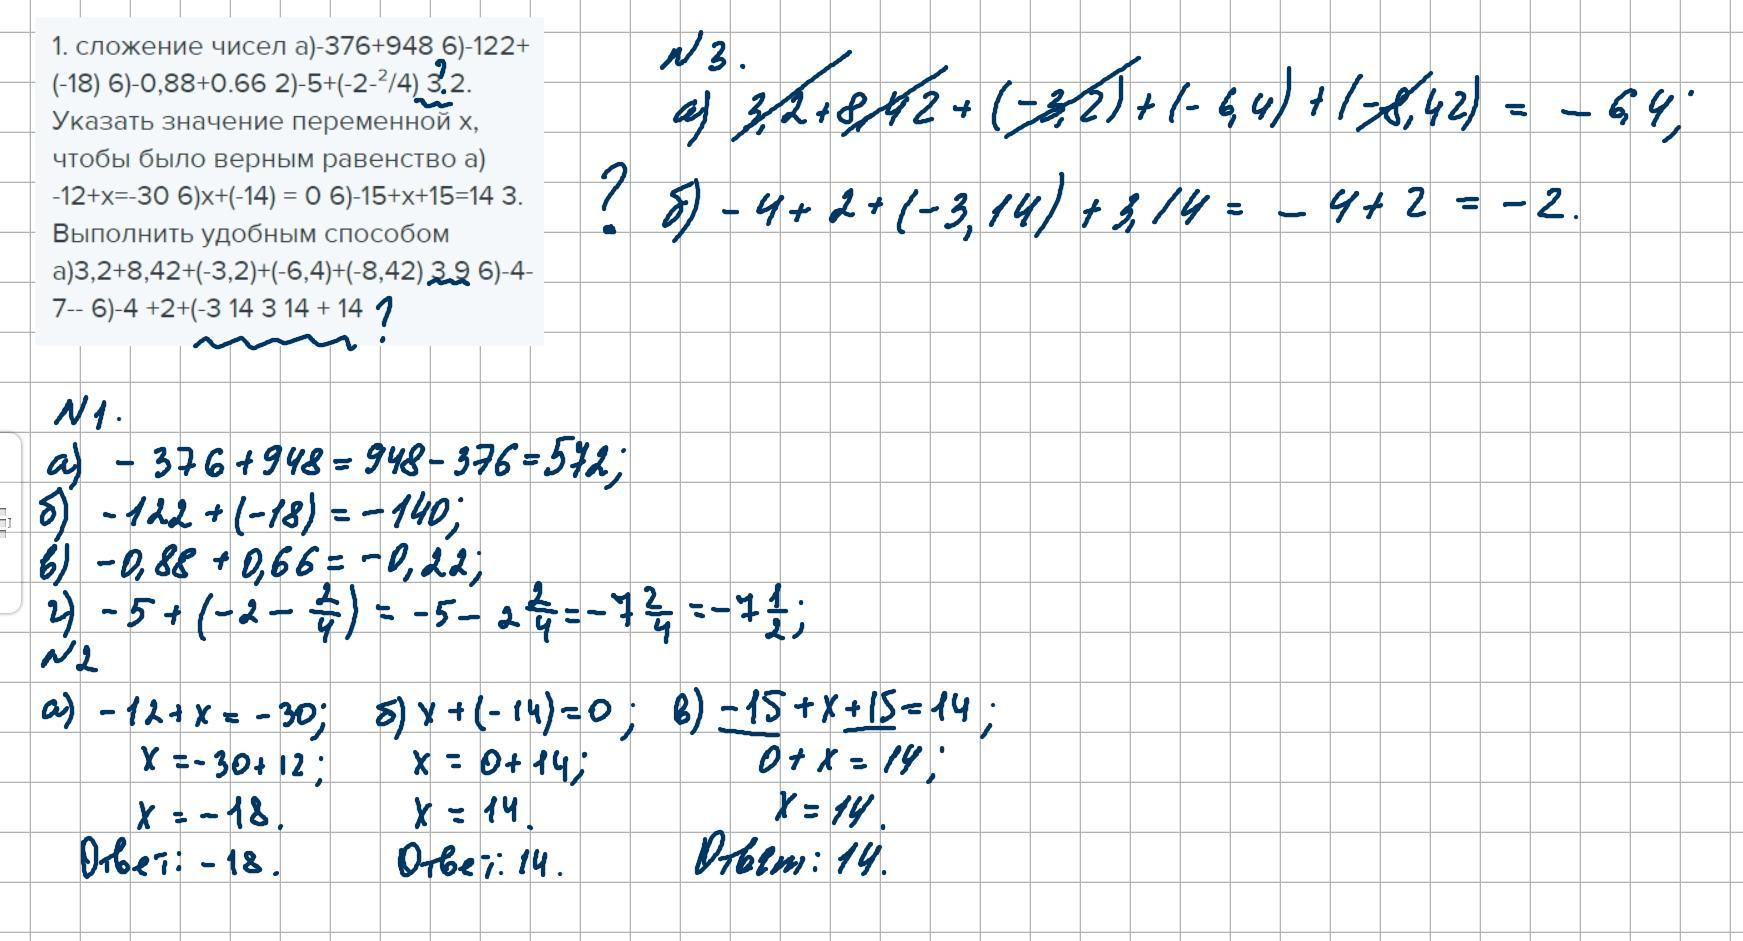 1. сложение чисел а)-376+948 6)-122+
(-18) 6)-0,88+0.66 2)-5+(-2-²/4) 3.2.
?
Указать значение переменной х,
чтобы было верным равенство а)
-12+x=-30 6)x+(-14) = 0 6)-15+x+15=14 3.
Выполнить удобным способом
а)3,2+8,42+(-3,2)+(-6,4)+(-8,42) 3 9 6)-4-
7-- 6)-4 +2+(-3 14 3 14 + 14 ?
N3.
а) 3,2+8,42+(-3,2)+(-6,4)+(-8,42) = -6,4;
? б) -4+2+(-3,14)+3,14= -4+2 = -2.
N1.
а) -376+948=948-376=572;
б) -122+(-18)=-140;
в) -0,88+0,66=-0,22;
г) -5+(-2-2/4)=-5-2 2/4=-7 2/4=-7 1/2;
N2
а) -12+x=-30; б) x+(-14)=0; в) -15+x+15=14;
x=-30+12; x=0+14; 0+x=14;
x=-18. x=14. x=14.
Ответ: -18. Ответ: 14. Ответ: 14.